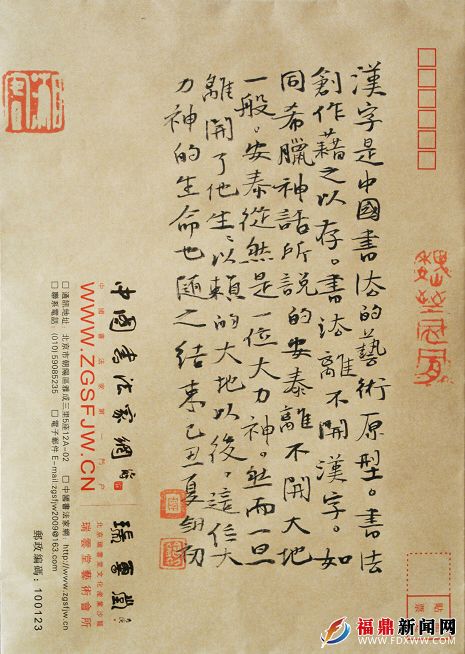 漢字是中國書法的藝術原型。書法
創作藉之以存。書法離不開漢字。如
同希臘神話所說的安泰離不開大地
一般。安泰從然是一位大力神。然而一旦
離開了他生〻以賴的大地以後。這位大
力神的生命也隨之結束 己丑夏
中國書法家網
中國書法家第一門户
WWW.ZGSFJW.CN
瑞雲堂
北京瑞雲堂文化產業沙龍
瑞雲堂藝術會所
□ 通訊地址 北京市朝陽區雅成三里5座12A-02 □ 中國書法家網: http://www.zgsfjw.cn
□ 聯系電話 (010)59085235 □ 電子郵件 E-mail:zgsfjw2009@163.com
郵政編碼: 100123
貼
票
福鼎新闻网
WWW.FDXWW.COM